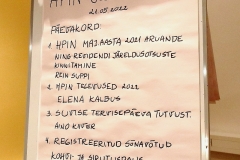 HPIN
21.05.2022
PÄEVAKORD:
1. HPIN MAJ.AASTA 2021 ARUANDE
NING REVIDENDI JÄRELDUSOTSUSTE
KINNITAMINE
REIN SUPPI
2. HPIN TEGEVUSED 2022
ELENA KALBUS
3. SUVISE TERVISEPÄEVA TUTVUST.
AINO KÄÄTER
4. REGISTREERITUD SÕNAVÕTUD
KOHVI- JA